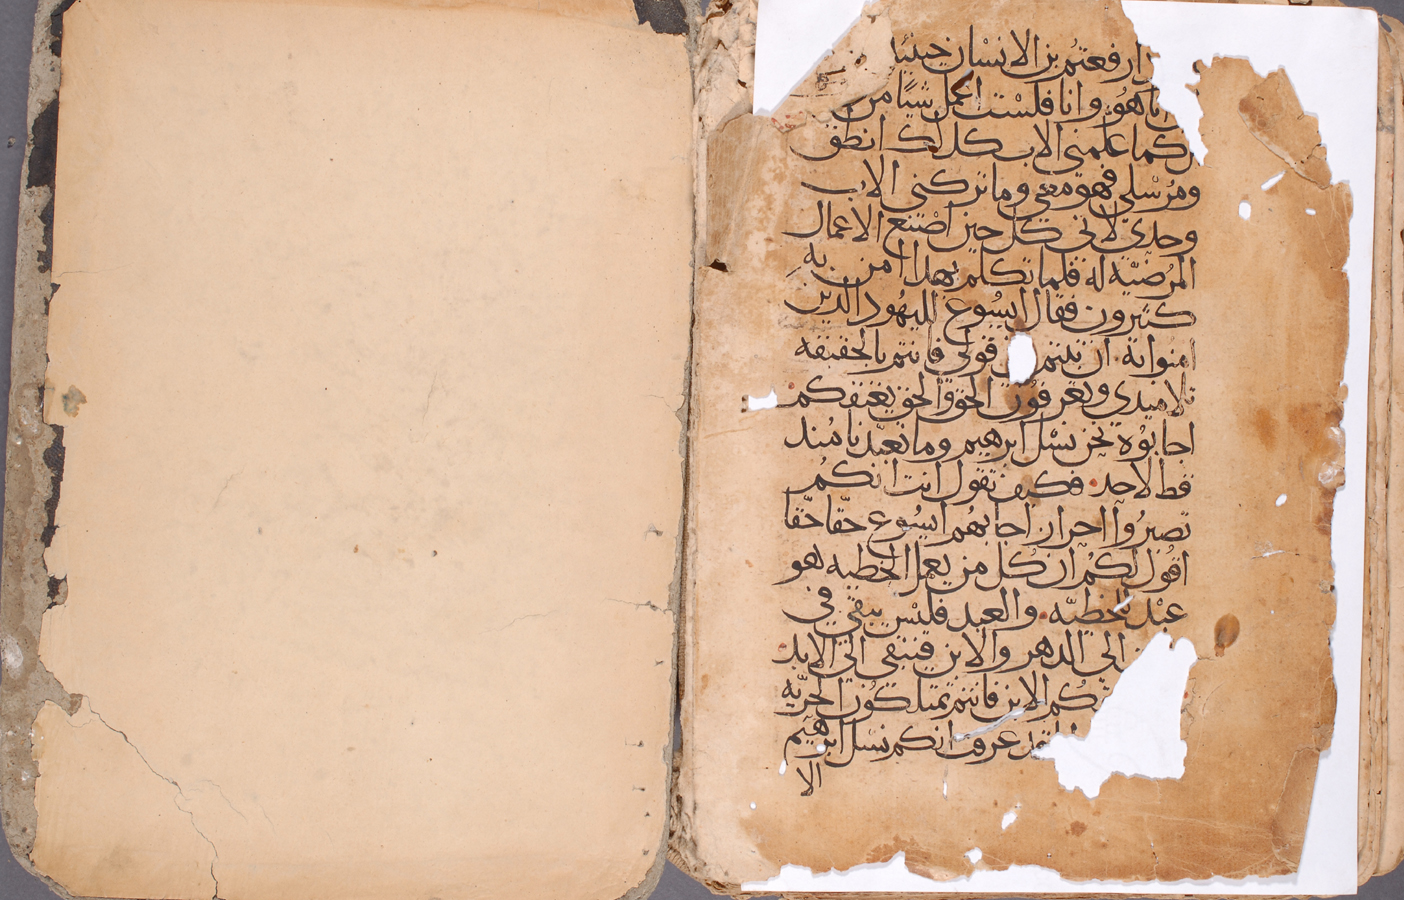 ارفعتم بن الانسان حينئذ
انا هو وانا فلست اعمل شيًا من
كما علمني الاب كذلك انطق
ومرسلي فهو معي وما تركني الاب
وحدي لاني كل حين اصنع الاعمال
المرضيّه له فلما تكلم بهذا امن به
كثيرون فقال ايسوع لليهود الذين
امنوا به ان ثبتم قولي فانتم بالحقيقه
تلاميذي وتعرفون الحق والحق يعتقكم
اجابوه نحن نسل ابرهيم وما تعبّدنا منذ
قط لاحد فكيف تقول انت انكم
تصيروا احرار اجابهم ايسوع حقّا حقّا
اقول لكم ان كل من يعمل الخطيه هو
عبد للخطيّه والعبد فليس يبقى في
الي الدهر والابن فيبقى الي الابد
الابن فانتم تمتلكون الحريّه
عرف انكم نسل ابرهيم
الا